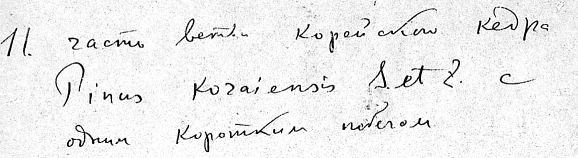 11. часть ветки корейского кедра
Pinus koraiensis S. et Z. с
одним коротким побегом